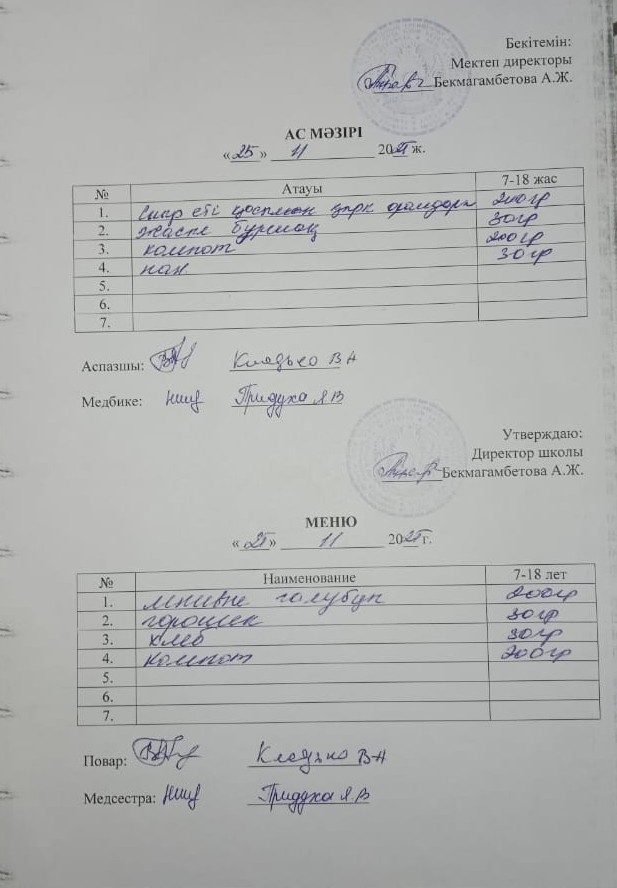 Бекітемін:
Мектеп директоры
Бекмагамбетова А.Ж.
АС МӘЗІРІ
«25» 11 2025 ж.
№ Атауы 7-18 жас
1. Сиыр еті қоспасы 200гр
2. жасыл бұршақ 30гр
3. компот 200гр
4. нан 30гр
5.
6.
7.
Аспазшы: Кладько В Н
Медбике: Придуха Л В
Утверждаю:
Директор школы
Бекмагамбетова А.Ж.
МЕНЮ
«25» 11 2025 г.
№ Наименование 7-18 лет
1. ленивые голубцы 200гр
2. горошек 30гр
3. хлеб 30гр
4. компот 200гр
5.
6.
7.
Повар: Кладько В Н
Медсестра: Придуха Л В